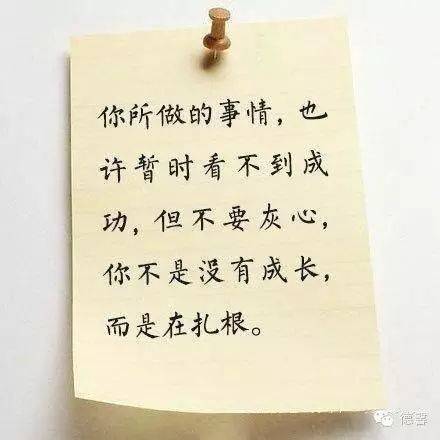 你所做的事情，也
许暂时看不到成
功，但不要灰心，
你不是没有成长，
而是在扎根。
德馨